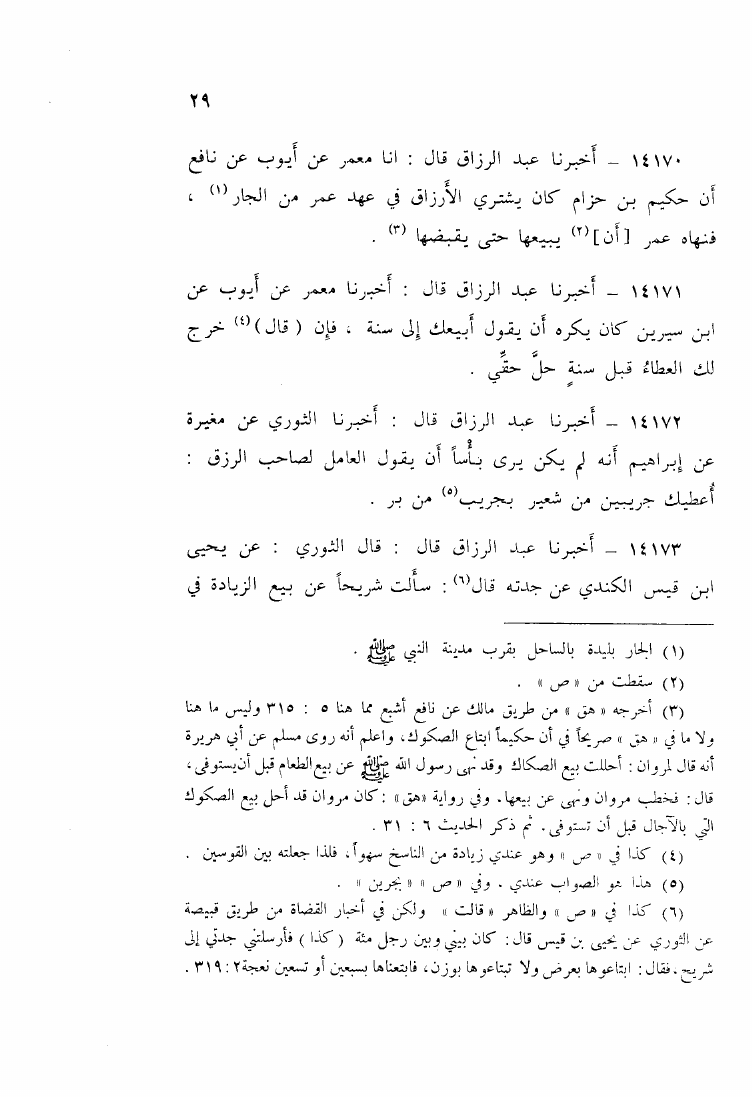 ٢٩
١٤١٧٠ – أخبرنا عبد الرزاق قال : انا معمر عن أيوب عن نافع
أن حكيم بن حزام كان يشتري الأرزاق في عهد عمر من الجار (١) ،
فنهاه عمر [أن] (٢) يبيعها حتى يقبضها (٣) .
١٤١٧١ – أخبرنا عبد الرزاق قال : أخبرنا معمر عن أيوب عن
ابن سيرين كان يكره أن يقول أبيعك إلى سنة ، فإن ( قال ) (٤) خرج
لك العطاءُ قبل سنةٍ حلَّ حقِّي .
١٤١٧٢ – أخبرنا عبد الرزاق قال : أخبرنا الثوري عن مغيرة
عن إبراهيم أنه لم يكن يرى بأْساً أن يقول العامل لصاحب الرزق :
أُعطيك جريبين من شعير بجريب (٥) من بر .
١٤١٧٣ – أخبرنا عبد الرزاق قال : قال الثوري : عن يحيى
ابن قيس الكندي عن جدته قال (٦) : سألت شريحاً عن بيع الزيادة في
(١) الجار بليدة بالساحل بقرب مدينة النبي ﷺ .
(٢) سقطت من « ص » .
(٣) أخرجه « هق » من طريق مالك عن نافع أشبع مما هنا ٥ : ٣١٥ وليس ما هنا
ولا ما في « هق » صريحاً في أن حكيماً ابتاع الصكوك، واعلم أنه روى مسلم عن أبي هريرة
أنه قال لمروان : أحللت بيع الصكاك وقد نهى رسول الله ﷺ عن بيع الطعام قبل أن يستوفى،
قال : فخطب مروان ونهى عن بيعها. وفي رواية «هق» : كان مروان قد أحل بيع الصكوك
التي بالآجال قبل أن تستوفى. ثم ذكر الحديث ٦ : ٣١ .
(٤) كذا في « ص » وهو عندي زيادة من الناسخ سهواً، فلذا جعلته بين القوسين .
(٥) هذا هو الصواب عندي . وفي « ص » « بجرين » .
(٦) كذا في « ص » والظاهر « قالت » ولكن في أخبار القضاة من طريق قبيصة
عن الثوري عن يحيى بن قيس قال : كان بيني وبين رجل مئة ( كذا ) فأرسلتني جدتي إلى
شريح، فقال : ابتاعوها بعرض ولا تبتاعوها بوزن، فابتعناها بسبعين أو تسعين نعجة ٢ : ٣١٩ .